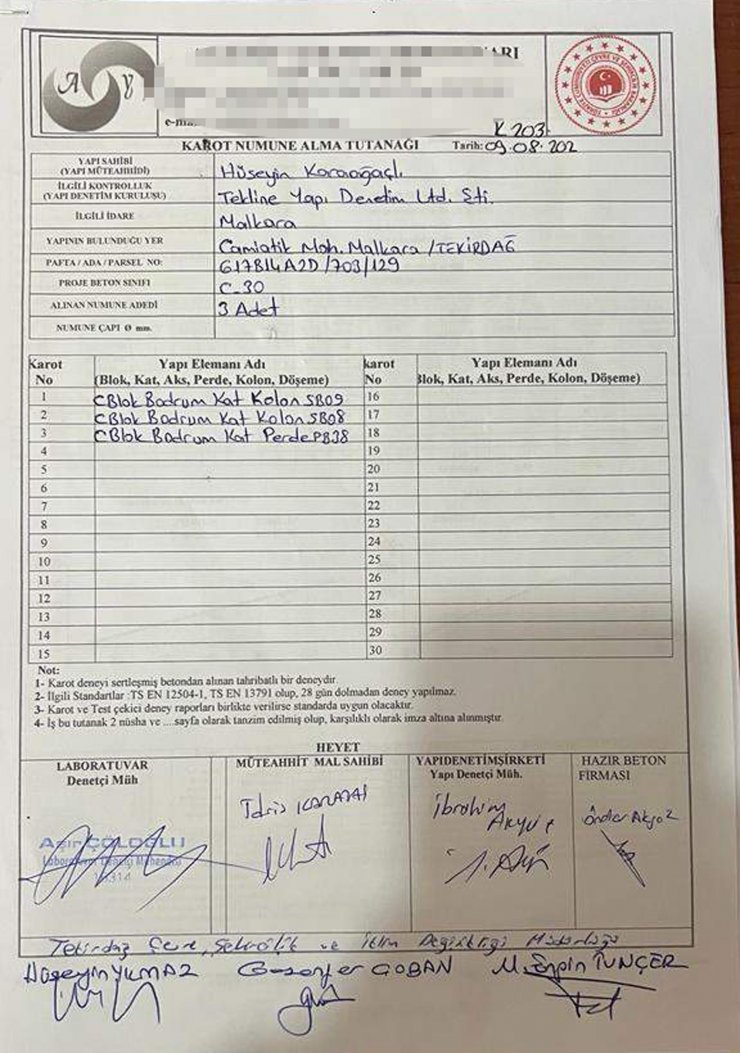 A Y
ARI
e-ma
K 203
KAROT NUMUNE ALMA TUTANAĞI Tarih: 09.08.202
YAPI SAHİBİ
(YAPI MÜTEAHHİDİ) Hüseyin Karaağaçlı
İLGİLİ KONTROLLUK
(YAPI DENETİM KURULUŞU) Tekline Yapı Denetim Ltd. Şti.
İLGİLİ İDARE Malkara
YAPININ BULUNDUĞU YER Camiatik Mah. Malkara / TEKİRDAĞ
PAFTA / ADA / PARSEL NO: G17B14A2D /703/129
PROJE BETON SINIFI C_30
ALINAN NUMUNE ADEDİ 3 Adet
NUMUNE ÇAPI Ø mm.
Karot No Yapı Elemanı Adı (Blok, Kat, Aks, Perde, Kolon, Döşeme) karot No Yapı Elemanı Adı Blok, Kat, Aks, Perde, Kolon, Döşeme)
1 C Blok Bodrum Kat Kolon SB09 16
2 C Blok Bodrum Kat Kolon SB08 17
3 C Blok Bodrum Kat Perde PB38 18
4 19
5 20
6 21
7 22
8 23
9 24
10 25
11 26
12 27
13 28
14 29
15 30
Not:
1- Karot deneyi sertleşmiş betondan alınan tahribatlı bir deneydir.
2- İlgili Standartlar :TS EN 12504-1, TS EN 13791 olup, 28 gün dolmadan deney yapılmaz.
3- Karot ve Test çekici deney raporları birlikte verilirse standarda uygun olacaktır.
4- İş bu tutanak 2 nüsha ve ....sayfa olarak tanzim edilmiş olup, karşılıklı olarak imza altına alınmıştır.
HEYET
LABORATUVAR
Denetçi Müh
MÜTEAHHİT MAL SAHİBİ
YAPIDENETİMŞİRKETİ
Yapı Denetçi Müh.
HAZIR BETON
FİRMASI
İdris
İbrahim
Akyüz
Önder Akyoz
ÇÖLOĞLU
Laboratuvar Denetçi Mühendisi
Tekirdağ Çevre, Şehircilik ve İklim Değişikliği Müdürlüğü
Hüseyin YILMAZ Gazanfer ÇOBAN M. Ergin TUNÇER